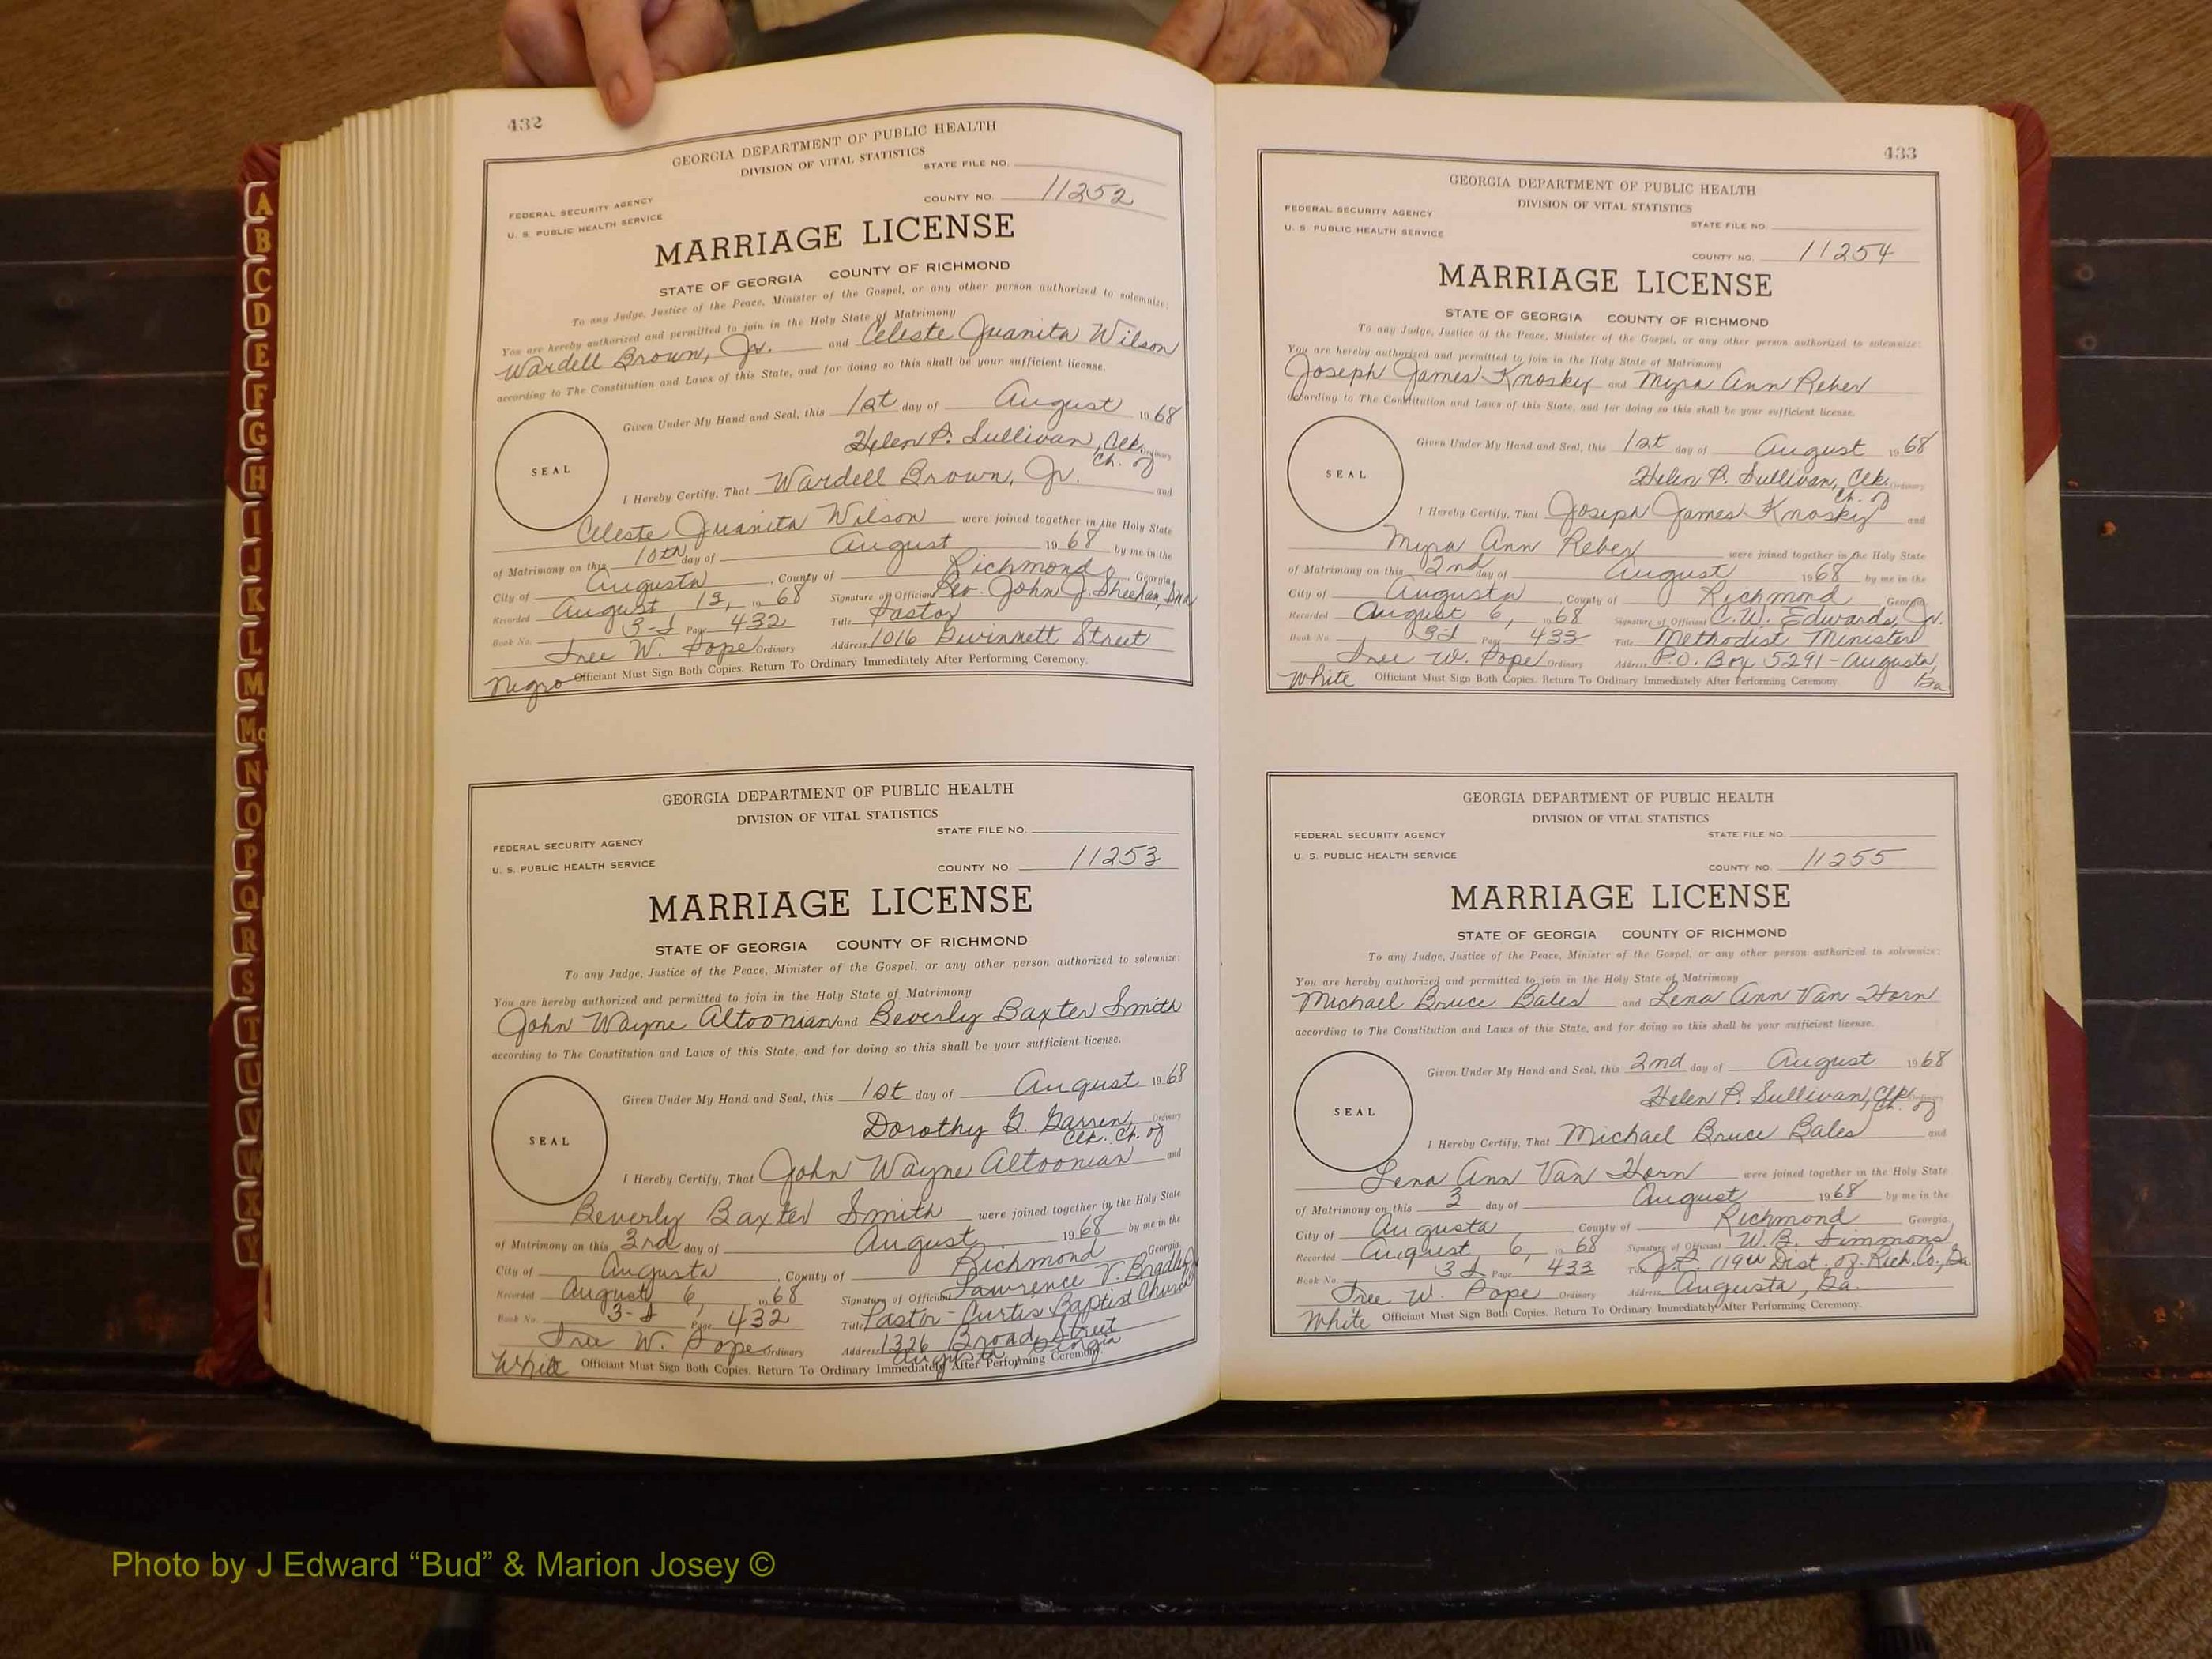 432
GEORGIA DEPARTMENT OF PUBLIC HEALTH
DIVISION OF VITAL STATISTICS
STATE FILE NO.
FEDERAL SECURITY AGENCY
U. S. PUBLIC HEALTH SERVICE
COUNTY NO. 11252
MARRIAGE LICENSE
STATE OF GEORGIA COUNTY OF RICHMOND
To any Judge, Justice of the Peace, Minister of the Gospel, or any other person authorized to solemnize:
You are hereby authorized and permitted to join in the Holy State of Matrimony
Wardell Brown, Jr. and Celeste Juanita Wilson
according to The Constitution and Laws of this State, and for doing so this shall be your sufficient license.
Given Under My Hand and Seal, this 1st day of August 1968
Helen P. Sullivan, Clk. Ordinary
Ch. of
SEAL
I Hereby Certify, That Wardell Brown, Jr. and
Celeste Juanita Wilson were joined together in the Holy State
of Matrimony on this 10th day of August 1968 by me in the
City of Augusta, County of Richmond, Georgia
Recorded August 13, 1968 Signature of Official Rev. John J. Sheehan,
Book No. 3-d Page 432 Title Pastor
Tree W. Pope Ordinary Address 1016 Gwinnett Street
Negro Officiant Must Sign Both Copies. Return To Ordinary Immediately After Performing Ceremony.
GEORGIA DEPARTMENT OF PUBLIC HEALTH
DIVISION OF VITAL STATISTICS
STATE FILE NO.
FEDERAL SECURITY AGENCY
U. S. PUBLIC HEALTH SERVICE
COUNTY NO 11253
MARRIAGE LICENSE
STATE OF GEORGIA COUNTY OF RICHMOND
To any Judge, Justice of the Peace, Minister of the Gospel, or any other person authorized to solemnize:
You are hereby authorized and permitted to join in the Holy State of Matrimony
John Wayne Altoonian and Beverly Baxter Smith
according to The Constitution and Laws of this State, and for doing so this shall be your sufficient license.
Given Under My Hand and Seal, this 1st day of August 1968
Dorothy G. Garren, Ordinary
Clk. Ch. of
SEAL
I Hereby Certify, That John Wayne Altoonian and
Beverly Baxter Smith were joined together in the Holy State
of Matrimony on this 3rd day of August 1968 by me in the
City of Augusta, County of Richmond Georgia
Recorded August 6, 1968 Signature of Official Lawrence V. Bradley
Book No. 3-d Page 432 Title Pastor - Curtis Baptist Church
Tree W. Pope Ordinary Address 1326 Broad Street
Augusta, Georgia
White Officiant Must Sign Both Copies. Return To Ordinary Immediately After Performing Ceremony.
433
GEORGIA DEPARTMENT OF PUBLIC HEALTH
DIVISION OF VITAL STATISTICS
FEDERAL SECURITY AGENCY
U. S. PUBLIC HEALTH SERVICE
STATE FILE NO.
COUNTY NO. 11254
MARRIAGE LICENSE
STATE OF GEORGIA COUNTY OF RICHMOND
To any Judge, Justice of the Peace, Minister of the Gospel, or any other person authorized to solemnize:
You are hereby authorized and permitted to join in the Holy State of Matrimony
Joseph James Knosky and Myra Ann Reber
according to The Constitution and Laws of this State, and for doing so this shall be your sufficient license.
Given Under My Hand and Seal, this 1st day of August 1968
Helen P. Sullivan, Clk. Ordinary
Ch. of
SEAL
I Hereby Certify, That Joseph James Knosky and
Myra Ann Reber were joined together in the Holy State
of Matrimony on this 2nd day of August 1968 by me in the
City of Augusta, County of Richmond Georgia
Recorded August 6, 1968 Signature of Official C. W. Edwards, Jr.
Book No. 3d Page 433 Title Methodist Minister
Tree W. Pope Ordinary Address P.O. Box 5291 - Augusta,
Ga
White Officiant Must Sign Both Copies. Return To Ordinary Immediately After Performing Ceremony.
GEORGIA DEPARTMENT OF PUBLIC HEALTH
DIVISION OF VITAL STATISTICS
FEDERAL SECURITY AGENCY
STATE FILE NO.
U. S. PUBLIC HEALTH SERVICE
COUNTY NO. 11255
MARRIAGE LICENSE
STATE OF GEORGIA COUNTY OF RICHMOND
To any Judge, Justice of the Peace, Minister of the Gospel, or any other person authorized to solemnize:
You are hereby authorized and permitted to join in the Holy State of Matrimony
Michael Bruce Bales and Lena Ann Van Horn
according to The Constitution and Laws of this State, and for doing so this shall be your sufficient license.
Given Under My Hand and Seal, this 2nd day of August 1968
Helen P. Sullivan, Clk. Ordinary
Ch. of
SEAL
I Hereby Certify, That Michael Bruce Bales and
Lena Ann Van Horn were joined together in the Holy State
of Matrimony on this 3 day of August 1968 by me in the
City of Augusta County of Richmond Georgia,
Recorded August 6, 1968 Signature of Official W. B. Simmons
Book No. 3d Page 433 Title J.P. 119th Dist. of Rich. Co., Ga.
Tree W. Pope Ordinary Address Augusta, Ga.
White Officiant Must Sign Both Copies. Return To Ordinary Immediately After Performing Ceremony.
A
B
C
D
E
F
G
H
I
J
K
L
M
Mc
N
O
P
Q
R
S
T
U
V
W
X
Y
Photo by J Edward “Bud” & Marion Josey ©